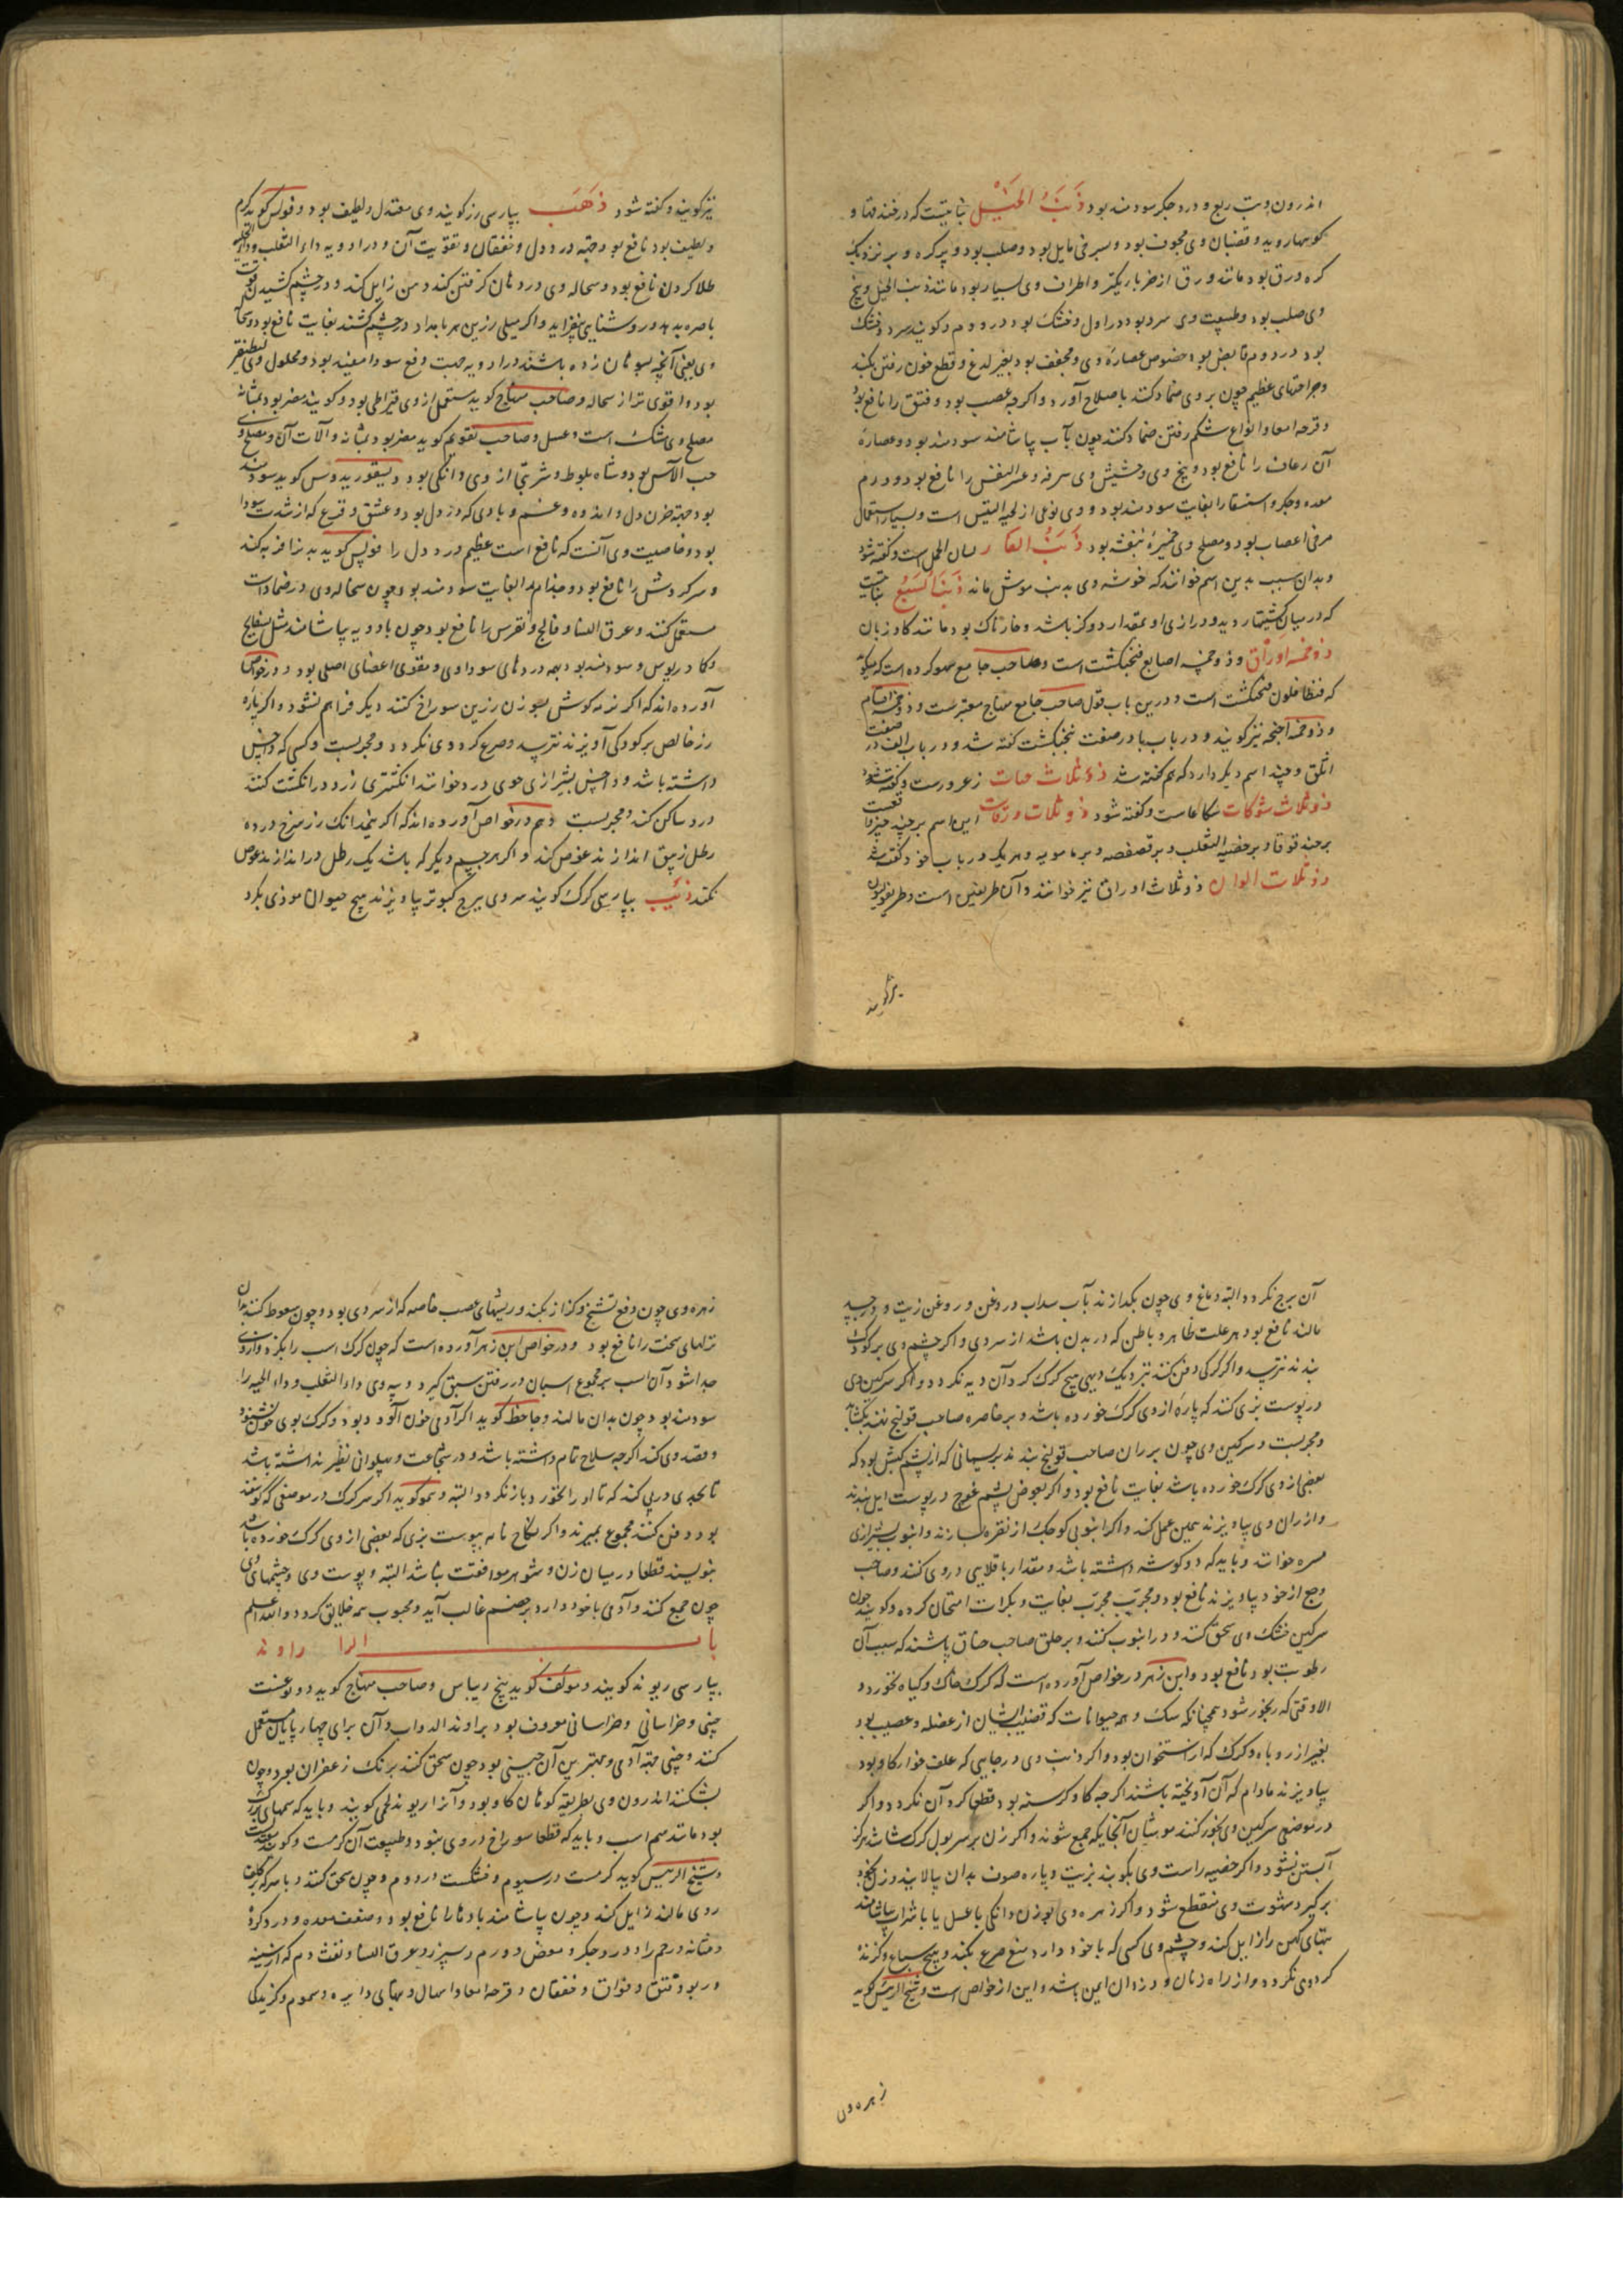 اندرون وتب ربع ودرد جکر سودمند بود ذَنَبُ الخَیْل نباتیست که در خندقها و
کوهها روید وقضبان وی مجوف بود وبسرخی مایل بود وصلب بود وپر کره وبر نزدیک
کره ورق بود مانند ورق اذخر باریکتر واطراف وی بسیار بود مانند ذنب الخیل وبیخ
وی صلب بود وطبیعت وی سرد بود در اول وخشک بود در دوم وکویند سرد وخشک
بود در دوم قابض بود خصوص عصارهٔ وی ومجفف بود بغیر لدغ وقطع خون رفتن بکند
وجراحتهای عظیم چون بر وی ضماد کنند باصلاح آورد واکرچه عصب بود وفتق را نافع بود
وقرحه امعا وانواع شکم رفتن ضماد کنند چون بآب بیاشامند سودمند بود وعصاره
آن رعاف را نافع بود وبیخ وی وحشیش وی سرفه وعسر النفس را نافع بود وورم
معده وجکر واستسقا را بغایت سودمند بود ووی نوعی از لحیه التیس است وبسیار استعمال
مرخی اعصاب بود ومصلح وی خمیرهٔ بنفشه بود ذَنَبُ الفار لسان الحمل است وکفته شود
وبدان سبب بدین اسم خوانند که خوشه وی بدنب موش ماند ذَنَبُ السَّبُع نباتیست
که در میان کشتها روید ودرازی او بمقدار دو کز باشد وخارناک بود مانند کاو زبان
ذو خمسه اوراق وذو خمسه اصابع فنجنکشت است وصاحب جامع سهو کرده است که میکوید
که فنطافلون فنجنکشت است ودرین باب قول صاحب جامع منهاج معتبرست وذو خمسه اقسام
وذو خمسه اجنحه نیز کویند ودر باب با در صفت بنجنکشت کفته شد ودر باب الف در صفت
اثلق وچند اسم دیکر دارد که هم کفته شد ذو ثلاث حبات زعرورست وکفته شود
ذو ثلاث شوکات شکاعاست وکفته شود ذو ثلاث ورقات این اسم بر چند چیز واقعست
بر حندقوقا وبر خصیة الثعلب وبر فصفصه وبر مامویه وهر یک در باب خود کفته شد
ذو ثلاث الوان ذو ثلاث اوراق نیز خوانند وآن طریفلن است وطریفولیون
نیز کویند
نیز کویند وکفته شود ذَهَب بپارسی زر کویند وی معتدل ولطیف بود وفولس کوید کرم
ولطیف بود نافع بود جهة درد دل وخفقان وتقویت آن ودر ادویه داء الثعلب وداء الحیه
طلا کردن نافع بود وسحاله وی در دهان کرفتن کند دهن زایل کند ودر چشم کشیدن قوت
باصره بدهد وروشنایی بیفزاید واکر میلی زرین هر بامداد در چشم کشند بغایت نافع بود وسحاله
وی یعنی آنچه بسوهان زده باشند در ادویه جهت دفع سودا مفید بود ومحلول وی لطیفتر
بود واقوی تر از سحاله وصاحب منهاج کوید مستعمل از وی قیراطی بود وکویند مضر بود بمثانه
مصلح وی مشک است وعسل وصاحب تقویم کوید مضر بود بمثانه وآلات آن ومصلح وی
حب الآس بود وشاه بلوط وشربتی از وی دانکی بود ودیسقوریدوس کوید سودمند
بود جهة حزن دل واندوه وغم وبادی که در دل بود وعشق وفزع که از شدت سودا
بود وخاصیت وی آنست که نافع است عظیم درد دل را فولس کوید بدن را فربه کند
وسر کردش را نافع بود وجذام را بغایت سودمند بود وچون سحاله وی در ضمادات
مستعمل کنند وعرق النسا وفالج ونقرس را نافع بود چون با ادویه بیاشامند مثل بسفایج
وکمادریوس وسودمند بود بهمه دردهای سوداوی ومقوی اعضای اصلی بود ودر خواص
آورده اند که اکر نرمه کوش بسوزن زرین سوراخ کنند دیکر فراهم نشود واکر پارهٔ
زر خالص بر کودکی آویزند نترسد وصرع کرد وی نکردد ومجربست وکسی که داحس
داشته باشد وداحس بشیرازی خوی درد خوانند انکشتری زر در انکشت کنند
درد ساکن کند ومجربست وهم در خواص آورده اند که اکر نیمدانک زر سرخ در ده
رطل زیبق اندازند غوص کند واکر هر جسم دیکر که باشد یک رطل در اندازند غوص
نکند ذئب بپارسی کرک کویند سر وی ببرج کبوتر بیاویزند هیچ حیوان موذی بکرد
آن برج نکردد البته دماغ وی چون بکدازند بآب سداب وروغن وروغن زیت ودر جسد
مالند نافع بود هر علت ظاهر وباطن که در بدن باشد از سردی واکر چشم وی بر کودک
بندند نترسد واکر کرکی دفن کنند نزدیک دیهی هیچ کرک کرد آن دیه نکردد واکر سرکین وی
در پوست بزی کنند که پاره از وی کرک خورده باشد وبر خاصره صاحب قولنج بندند بکشاید
ومجربست وسرکین وی چون بر ران صاحب قولنج بندند بریسمانی که از پشم کبش بود که
بعضی از وی کرک خورده باشد بغایت نافع بود واکر بعوض پشم غوچ در پوست ایل بندند
واز ران وی بیاویزند همین عمل کند واکر انبوبی کوچک از نقره بسازند وانبوب بشیرازی
مسره خوانند وباید که دو کوشه داشته باشد ومقدار باقلایی در وی کنند وصاحب
وجع از خود بیاویزد نافع بود ومجربست مجرب بغایت وبکرات امتحان کرده وکویند چون
سرکین خشک وی سحق کنند ودر انبوب کنند وبر حلق صاحب خناق پاشند که سبب آن
رطوبت بود نافع بود وابن زهر در خواص آورده است که کرک خاک وکیاه نخورد
الا وقتی که رنجور شود همچنانکه سک وهمه حیوانات که قضیب ایشان از عضله وعصب بود
بغیر از روباه وکرک که از استخوان بود واکر ذنب وی در جایی که علف خوار کاو بود
بیاویزند مادام که آن آویخته باشند اکرچه کاو کرسنه بود قطعا کرد آن نکردد واکر
در موضعی سرکین وی بخور کنند موشان آنجایکه جمع شوند واکر زن بر سر بول کرک شاشد هرکز
آبستن نشود واکر خصیه راست وی بکوبند بزیت وپاره صوف بدان بیالایند وزن بخود
برکیرد شهوت وی منقطع شود واکر زهره وی بوزن دانکی با عسل یا با شراب بیاشامند
تبهای کهن را زایل کند وچشم وی کسی که با خود دارد منع صرع بکند وهیچ سباع وکزنده
کرد وی نکردد واز راه زنان ودزدان ایمن باشد واین از خواص است وشیخ الرئیس کوید
زهره وی
زهره وی چون دفع تشنج وکزاز بکند وریشهای عصب خاصه که از سردی بود وچون سعوط کنند بدان
نزلهای سخت را نافع بود ودر خواص ابن زهر آورده است که چون کرک اسب را بکزد واز وی
جدا شود آن اسب بر مجموع اسبان در رفتن سبق کیرد وپیه وی داء الثعلب وداء الحیه را
سودمند بود چون بدان مالند وجاحظ کوید اکر آدمی خون آلود بود وکرک بوی خون شنود
وقصد وی کند اکرچه سلاح تمام داشته باشد ودر شجاعت وپهلوانی نظیر نداشته باشد
تا بحدی در پی کند که تا او را بخورد باز نکردد البته وهمو کوید اکر سر کرک در موضعی که کوسفند
بود دفن کنند مجموع بمیرند واکر نکاح نامه بپوست بزی که بعضی از وی کرک خورده باشد
بنویسند قطعا در میان زن وشوهر موافقت نباشد البته وپوست وی وچشمهای وی
چون جمع کنند وآدمی با خود دارد بر خصم غالب آید ومحبوب همه خلایق کردد والله اعلم
باب الرا راوند
بپارسی ریوند کویند ومولف کوید بیخ ریباس وصاحب منهاج کوید دو نوعست
چینی وخراسانی وخراسانی معروف بود براوند الدواب وآن برای چهارپایان مستعمل
کنند وچینی جهة آدمی وبهترین آن چینی بود چون سحق کنند برنک زعفران بود وچون
بشکنند اندرون وی بطریقه کوهان کاو بود وآنرا ریوند لحمی کویند وباید که سمهای بزرک
بود مانند سم اسب وباید که قطعا سوراخ در وی نبود وطبیعت آن کرمست وکویند معتدلست
وشیخ الرئیس کوید کرمست در سیوم وخشکست در دوم وچون سحق کنند وبا سرکه بر کلف
روی مالند زایل کند وچون بیاشامند بادها را نافع بود وضعف معده ودرد کرده
ومثانه ورحم را ودرد جکر ومعض وورم وسپرز وعرق النسا ونفث دم که از سینه
وربو وفتق وفواق وخفقان وقرحه امعا واسهال وتبهای دایره وسموم وکزیدکی